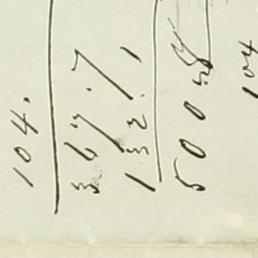 104.
367.7
132.1
500
104